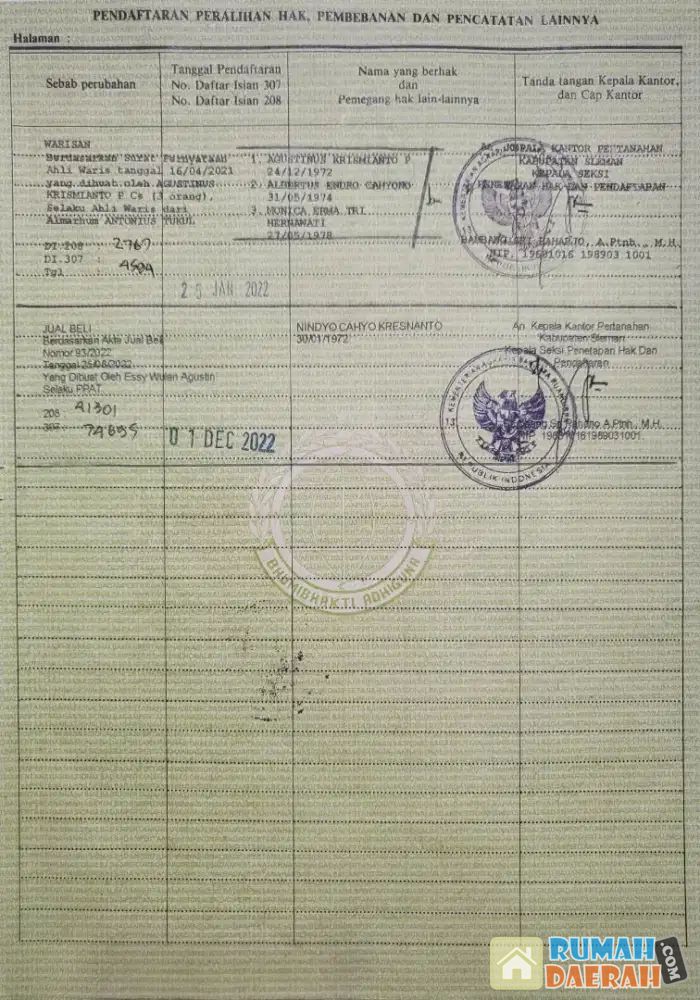 PENDAFTARAN PERALIHAN HAK, PEMBEBANAN DAN PENCATATAN LAINNYA
Halaman :
Sebab perubahan
Tanggal Pendaftaran
No. Daftar Isian 307
No. Daftar Isian 208
Nama yang berhak
dan
Pemegang hak lain-lainnya
Tanda tangan Kepala Kantor,
dan Cap Kantor
WARISAN
Berdasarkan Surat Pernyataan
Ahli Waris tanggal 16/04/2021
yang dibuat oleh AGUSTINUS
KRISMIANTO P Cs (3 orang),
Selaku Ahli Waris dari
Almarhum ANTONIUS TUKUL
DI.208 : 2767
DI.307 :
Tgl :
25 JAN 2022
1. AGUSTINUS KRISMIANTO P
24/12/1972
2. ALBERTUS ENDRO CAHYONO
31/05/1974
3. MONICA ERMA TRI
HERMAWATI
27/05/1978
An. KEPALA KANTOR PERTANAHAN
KABUPATEN SLEMAN
KEPALA SEKSI
PENETAPAN HAK DAN PENDAFTARAN
BAMBANG SRI RAHARJO, A.Ptnh., M.H.
NIP. 19681016 198903 1001
JUAL BELI
Berdasarkan Akta Jual Beli
Nomor 93/2022
Tanggal 25/08/2022
Yang Dibuat Oleh Essy Wulan Agustin
Selaku PPAT
208 41301
307 74695
01 DEC 2022
NINDYO CAHYO KRESNANTO
30/01/1972
An. Kepala Kantor Pertanahan
Kabupaten Sleman
Kepala Seksi Penetapan Hak Dan
Pendaftaran
A.Ptnh., M.H.
REPUBLIK INDONESIA
BHUMIBHAKTI ADHIGUNA
RUMAH
DAERAH.COM